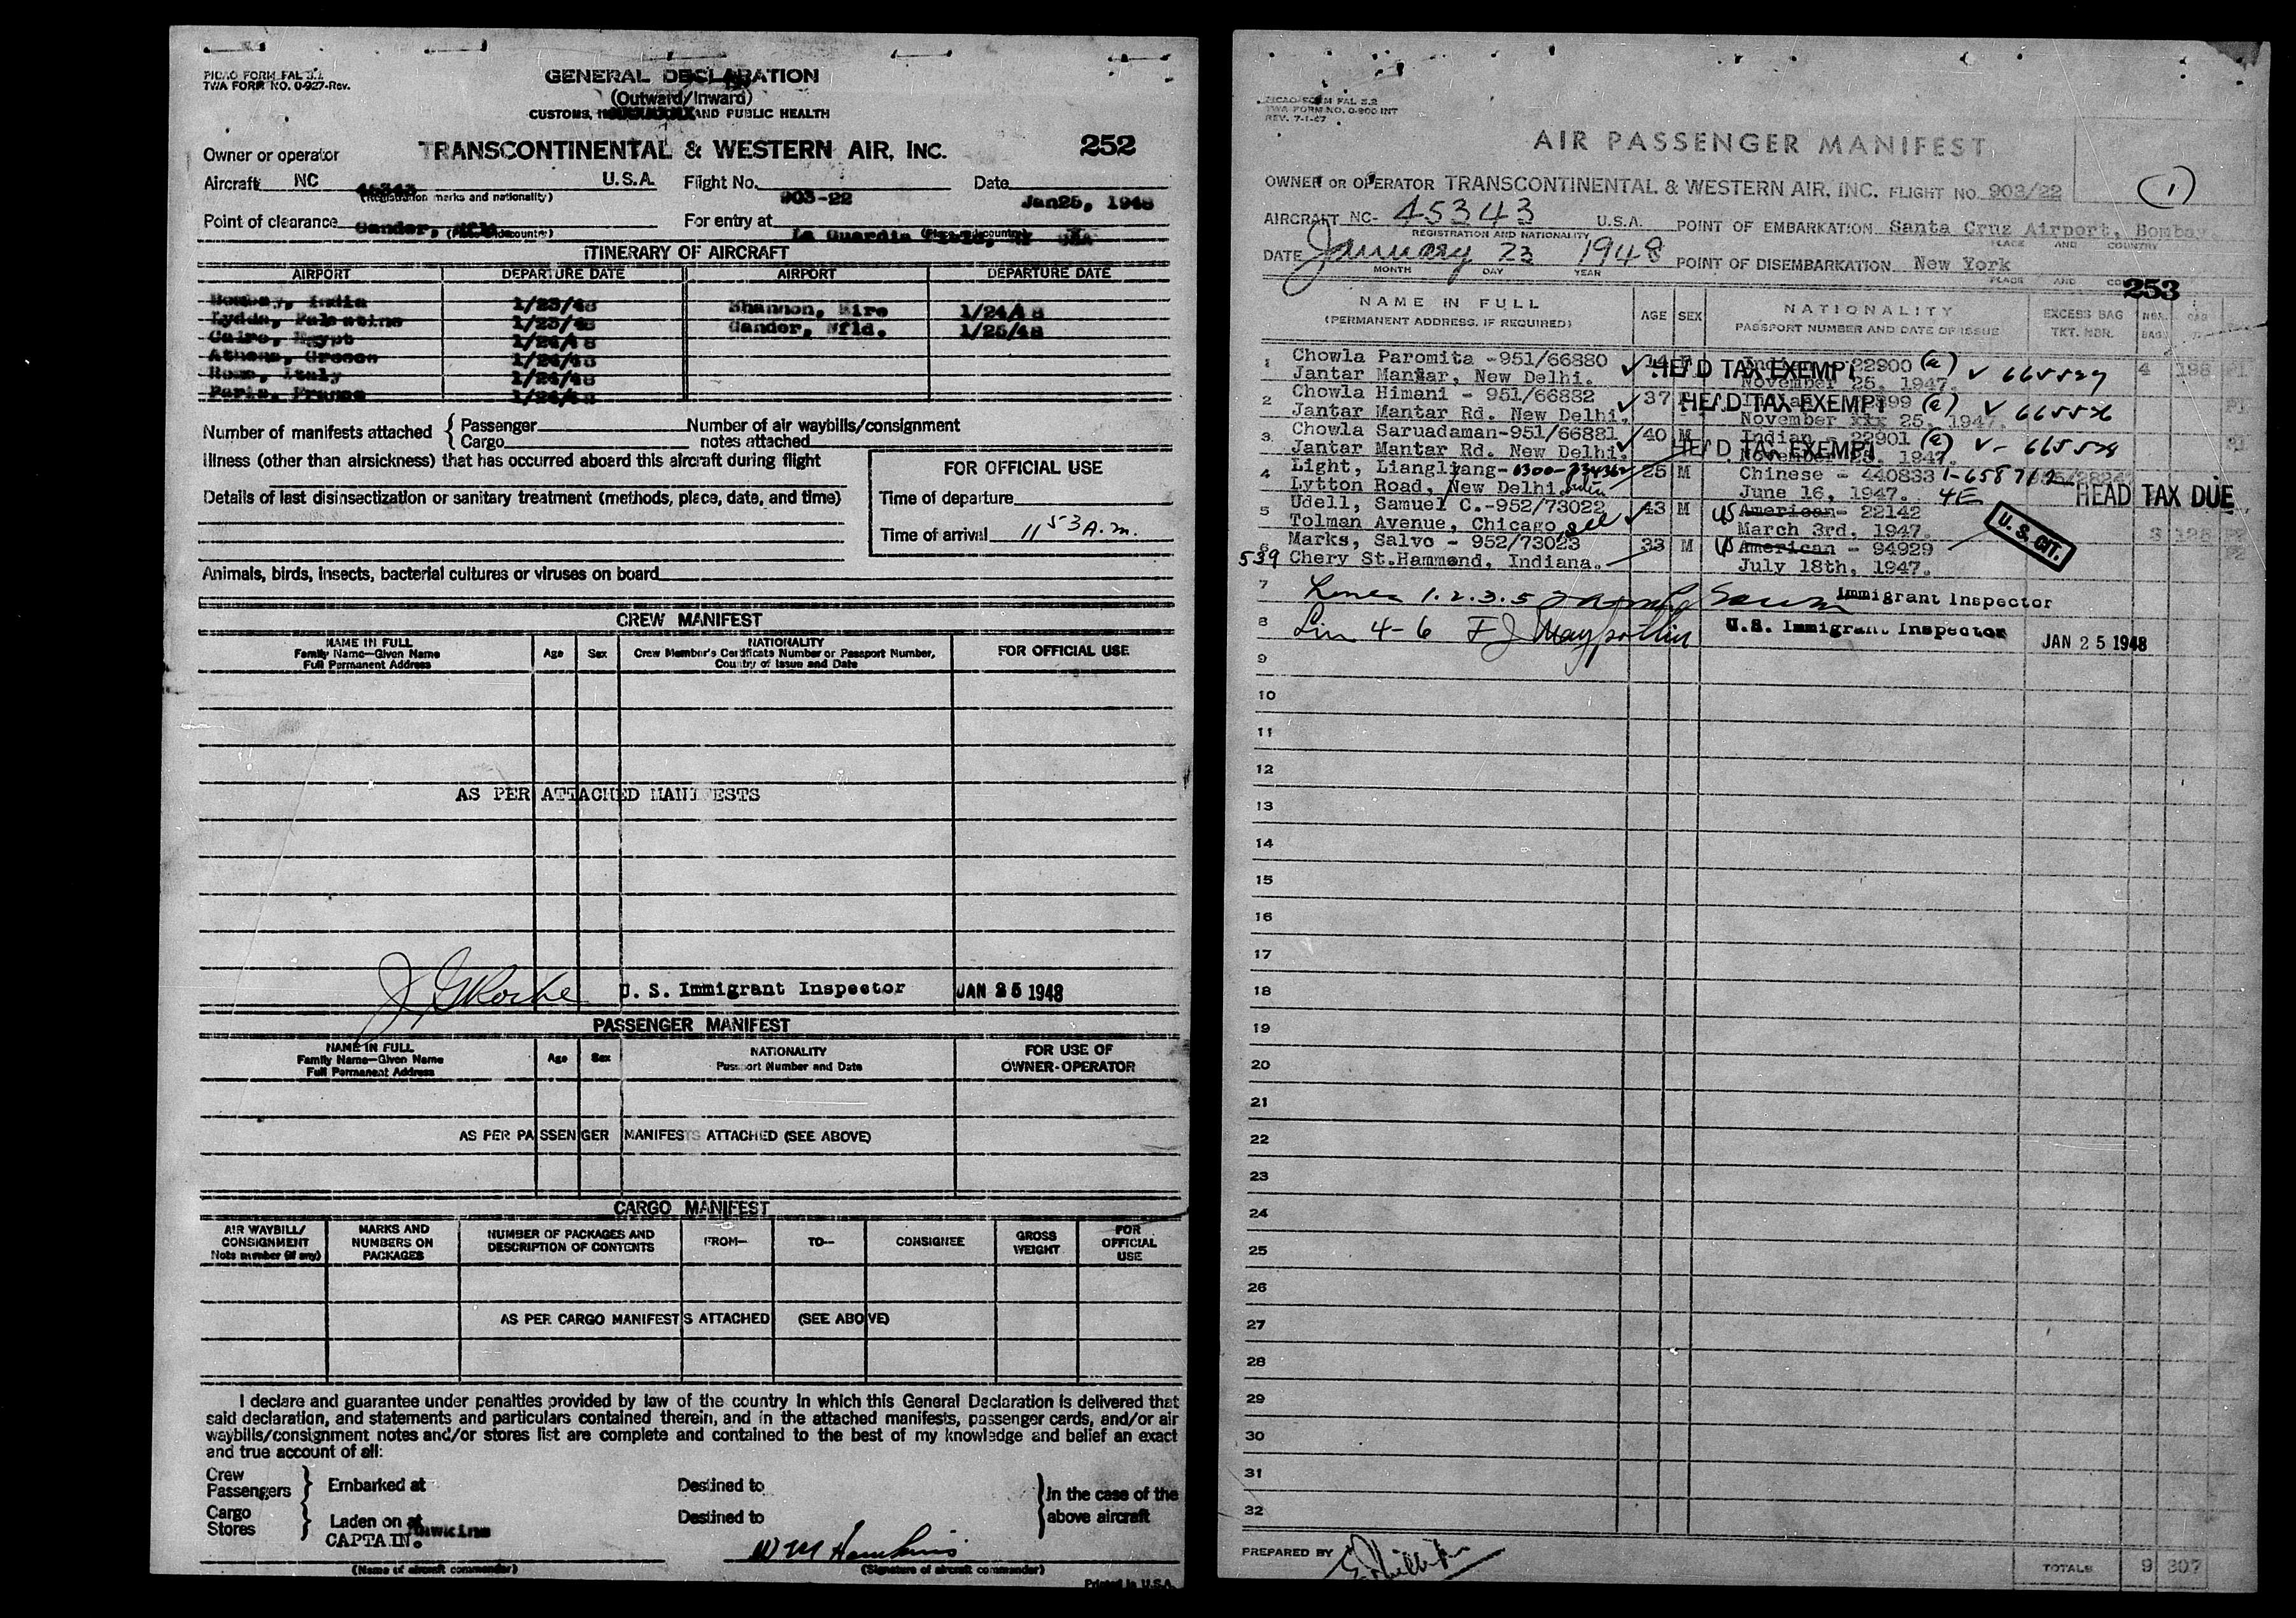 PICAO FORM FAL 3.1
TWA FORM NO. 0-927-Rev.
GENERAL DECLARATION
(Outward/Inward)
CUSTOMS, AND PUBLIC HEALTH
Owner or operator TRANSCONTINENTAL & WESTERN AIR, INC. 252
Aircraft NC 45343 U.S.A. Flight No. 903-22 Date Jan25, 1948
(Registration marks and nationality)
Point of clearance Gander, Nfld. (Place and country) For entry at La Guardia Field, NY USA (Place and country)
ITINERARY OF AIRCRAFT
AIRPORT DEPARTURE DATE AIRPORT DEPARTURE DATE
Bombay, India 1/23/48 Shannon, Eire 1/24/48
Lydda, Palestine 1/23/48 Gander, Nfld. 1/25/48
Cairo, Egypt 1/24/48
Athens, Greece 1/24/48
Rome, Italy 1/24/48
Paris, France 1/24/48
Number of manifests attached { Passenger Number of air waybills/consignment
Cargo notes attached
Illness (other than airsickness) that has occurred aboard this aircraft during flight
Details of last disinsectization or sanitary treatment (methods, place, date, and time)
FOR OFFICIAL USE
Time of departure
Time of arrival 11 53 A.m.
Animals, birds, insects, bacterial cultures or viruses on board
CREW MANIFEST
NAME IN FULL
Family Name—Given Name
Full Permanent Address
Age Sex
NATIONALITY
Crew Member's Certificate Number or Passport Number,
Country of Issue and Date
FOR OFFICIAL USE
AS PER ATTACHED MANIFESTS
J G Roche U. S. Immigrant Inspector JAN 25 1948
PASSENGER MANIFEST
NAME IN FULL
Family Name—Given Name
Full Permanent Address
Age Sex
NATIONALITY
Passport Number and Date
FOR USE OF
OWNER-OPERATOR
AS PER PASSENGER MANIFESTS ATTACHED (SEE ABOVE)
CARGO MANIFEST
AIR WAYBILL/
CONSIGNMENT
Note number (if any)
MARKS AND
NUMBERS ON
PACKAGES
NUMBER OF PACKAGES AND
DESCRIPTION OF CONTENTS
FROM—
TO—
CONSIGNEE
GROSS
WEIGHT
FOR
OFFICIAL
USE
AS PER CARGO MANIFESTS ATTACHED (SEE ABOVE)
I declare and guarantee under penalties provided by law of the country in which this General Declaration is delivered that
said declaration, and statements and particulars contained therein, and in the attached manifests, passenger cards, and/or air
waybills/consignment notes and/or stores list are complete and contained to the best of my knowledge and belief an exact
and true account of all:
Crew
Passengers } Embarked at Destined to
Cargo
Stores } Laden on at Destined to
} in the case of the
above aircraft
CAPTAIN. Hawkins
W M Hawkins
(Name of aircraft commander) (Signature of aircraft commander)
Printed in U.S.A.
PICAO FORM FAL 3.2
TWA FORM NO. 0-800 INT
REV. 7-1-47
AIR PASSENGER MANIFEST
1
OWNER OR OPERATOR TRANSCONTINENTAL & WESTERN AIR, INC. FLIGHT NO. 903/22
AIRCRAFT NC- 45343 U.S.A. POINT OF EMBARKATION Santa Cruz Airport, Bombay.
REGISTRATION AND NATIONALITY PLACE AND COUNTRY
DATE January 23 1948 POINT OF DISEMBARKATION New York
MONTH DAY YEAR PLACE AND
253
NAME IN FULL
(PERMANENT ADDRESS, IF REQUIRED)
AGE SEX
NATIONALITY
PASSPORT NUMBER AND DATE OF ISSUE
EXCESS BAG
TKT. NBR.
NBR.
BAGS
1 Chowla Paromita -951/66880 14 F Indian 22900 (e) 665527 4 198
Jantar Mantar, New Delhi. HEAD TAX EXEMPT November 25, 1947.
2 Chowla Himani - 951/66882 37 22899 (e) 665526
Jantar Mantar Rd. New Delhi. HEAD TAX EXEMPT November xxx 25, 1947.
3 Chowla Saruadaman-951/66881 40 M Indian - 22901 (e) 665528
Jantar Mantar Rd. New Delhi. HEAD TAX EXEMPT November 25, 1947.
4 Light, Liangliang- 25 M Chinese - 440833 1-658712
Lytton Road, New Delhi. India June 16, 1947. 4E HEAD TAX DUE
5 Udell, Samuel C.-952/73022 43 M US American- 22142
Tolman Avenue, Chicago, Ill March 3rd, 1947. U. S. CIT.
6 Marks, Salvo - 952/73023 33 M US American - 94929
539 Chery St.Hammond, Indiana. July 18th, 1947.
7 Lines 1.2.3.5 Immigrant Inspector
8 Lin 4-6 U.S. Immigrant Inspector JAN 25 1948
9
10
11
12
13
14
15
16
17
18
19
20
21
22
23
24
25
26
27
28
29
30
31
32
PREPARED BY
TOTALS 9 307